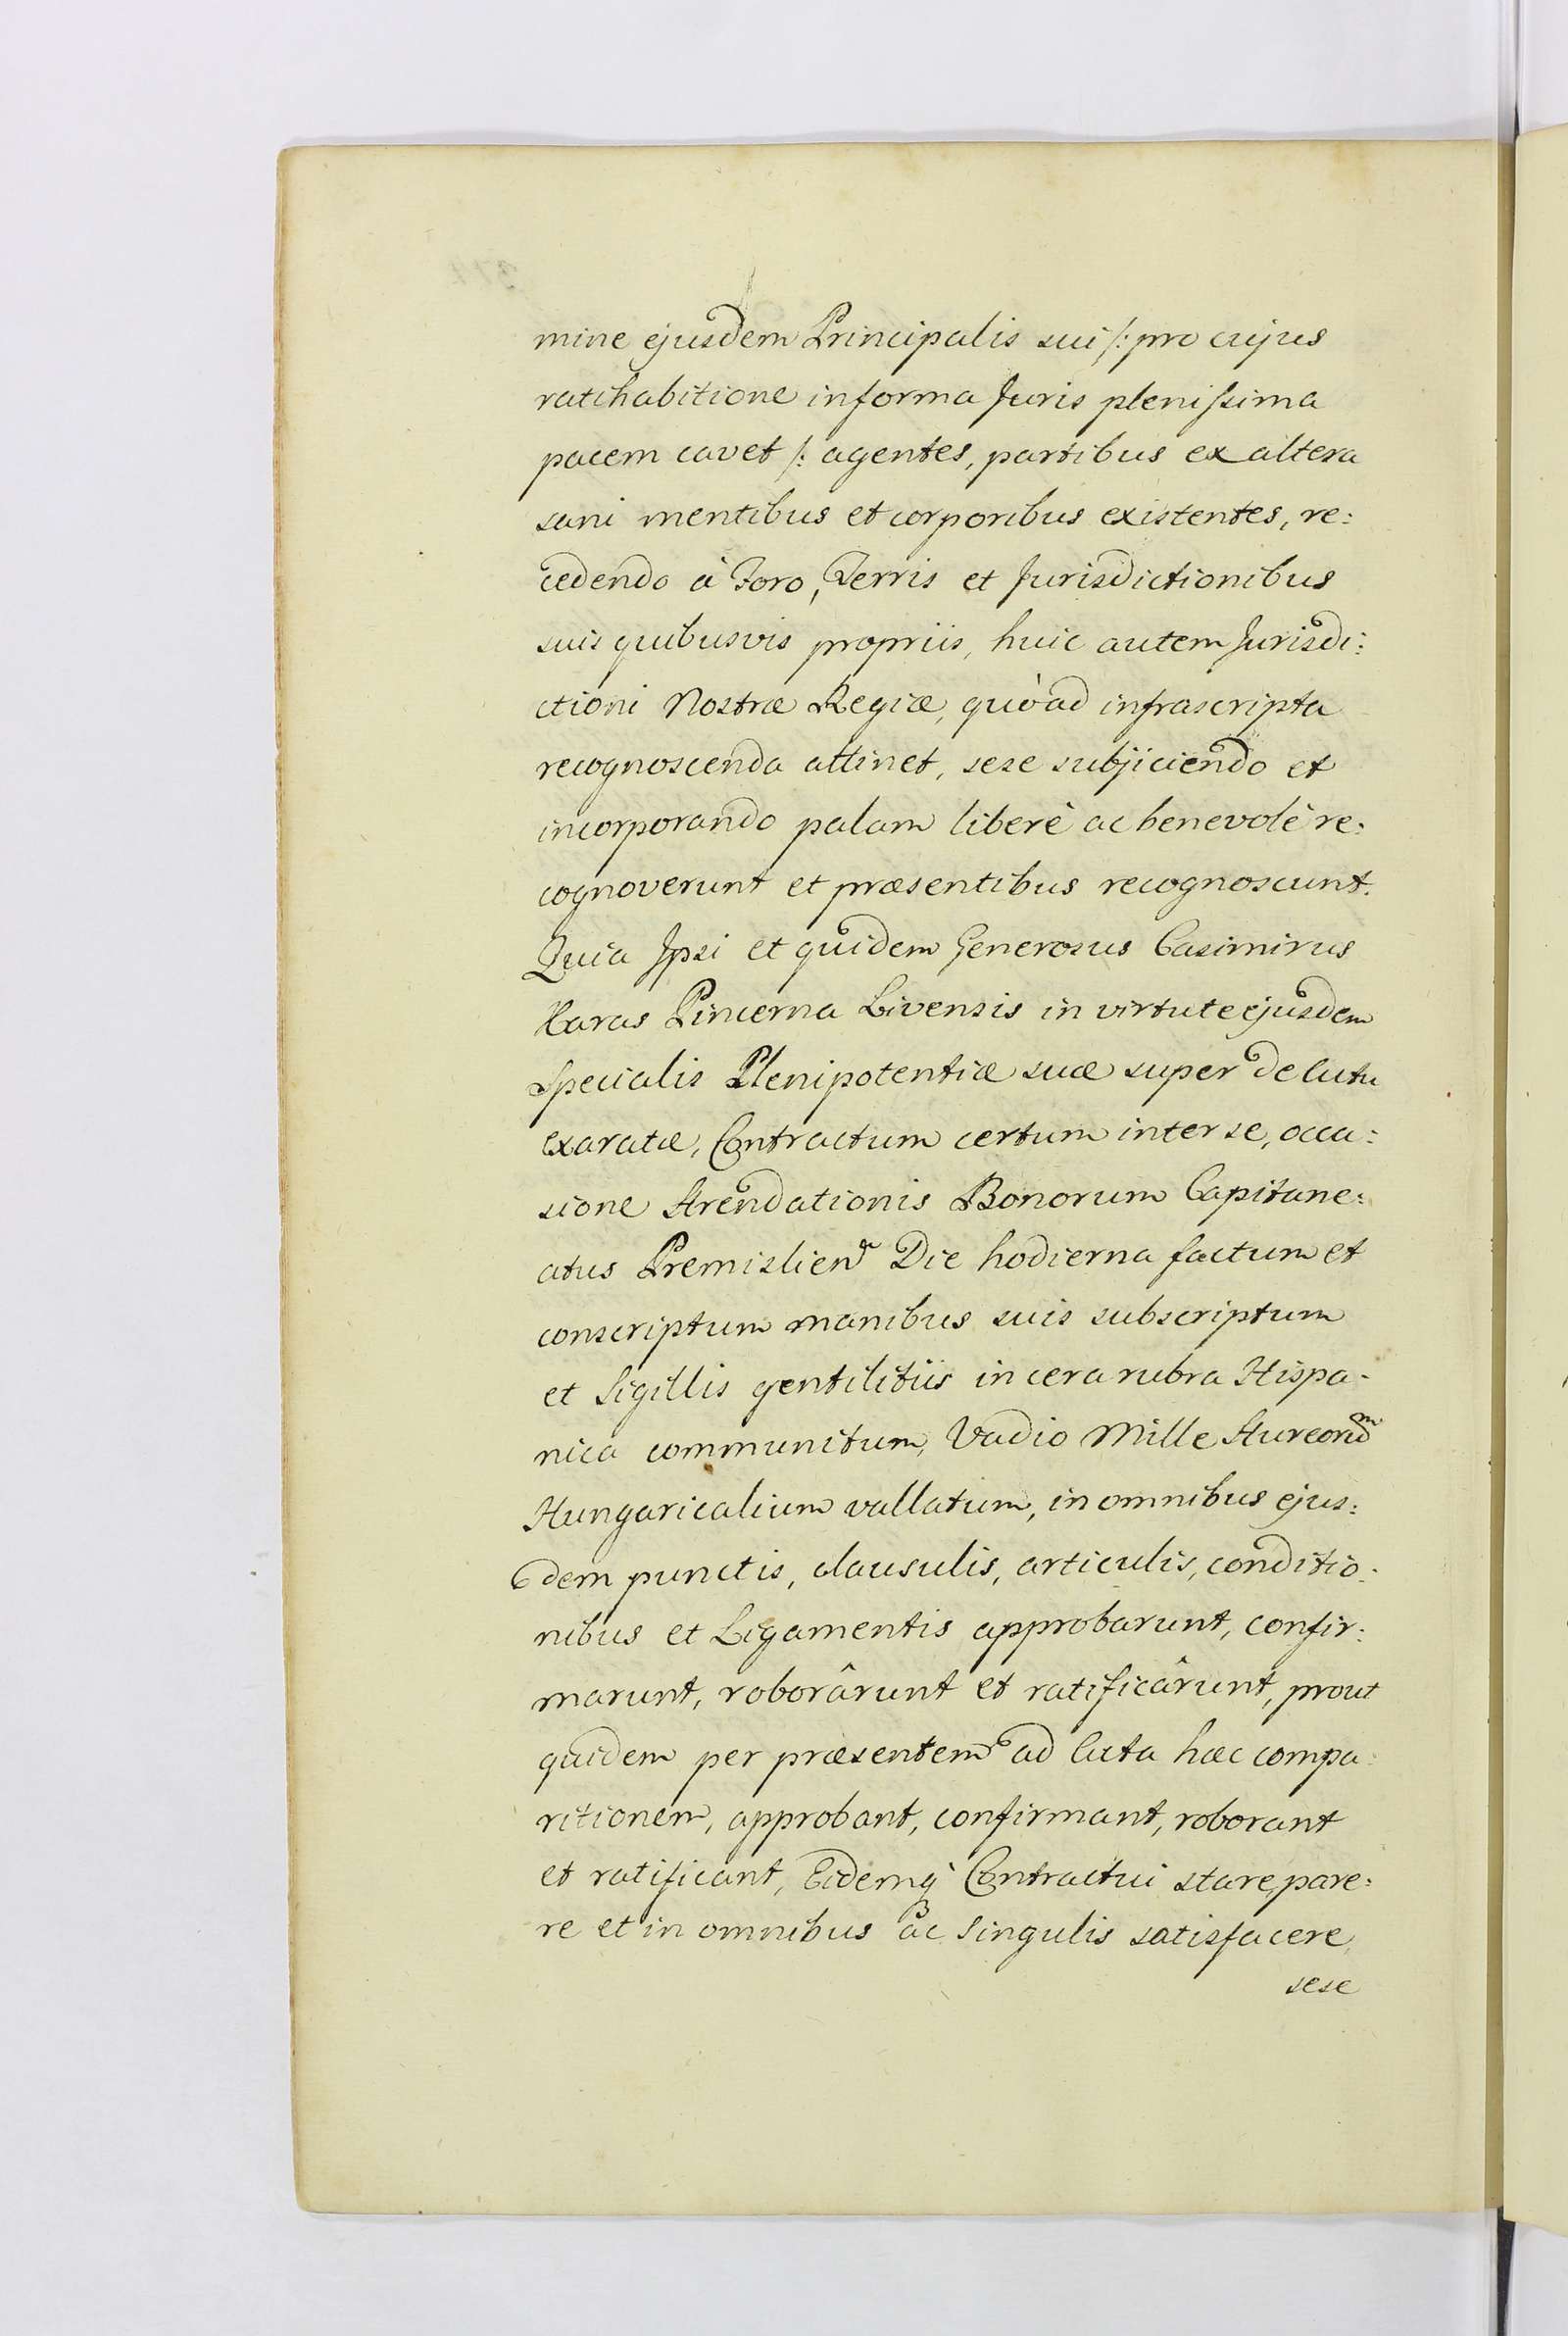 mine ejusdem Principalis sui /: pro cujus
ratihabitione in forma Juris plenissima
pacem cavet /: agentes, partibus ex altera
sani mentibus et corporibus existentes, re:
cedendo à Foro, Terris et Jurisdictionibus
suis quibusvis propriis, huic autem Jurisdi:
ctioni Nostræ Regiæ, quòad infrascripta
recognoscenda attinet, sese subjiciendo et
incorporando palam liberè ac benevolè re:
cognoverunt et præsentibus recognoscunt.
Quia Ipsi et quidem Generosus Casimirus
Karas Pincerna Livensis in virtute ejusdem
Specialis Plenipotentiæ suæ super de Actu
exaratæ, Contractum certum inter se, occa:
sione Arendationis Bonorum Capitane:
atus Premislien Die hodierna factum et
conscriptum manibus suis subscriptum
et Sigillis gentilitiis in cera rubra Hispa-
nica communitum, Vadio Mille Aureorum
Hungaricalium vallatum, in omnibus ejus:
dem punctis, clausulis, articulis, conditio:
nibus et Ligamentis approbarunt, confir:
marunt, roborârunt et ratificârunt, prout
quidem per præsentem ad Acta hæc compa:
ritionem, approbant, confirmant, roborant
et ratificant, Eidemq̀ Contractui stare, pare:
re et in omnibus ac Singulis satisfacere,
sese